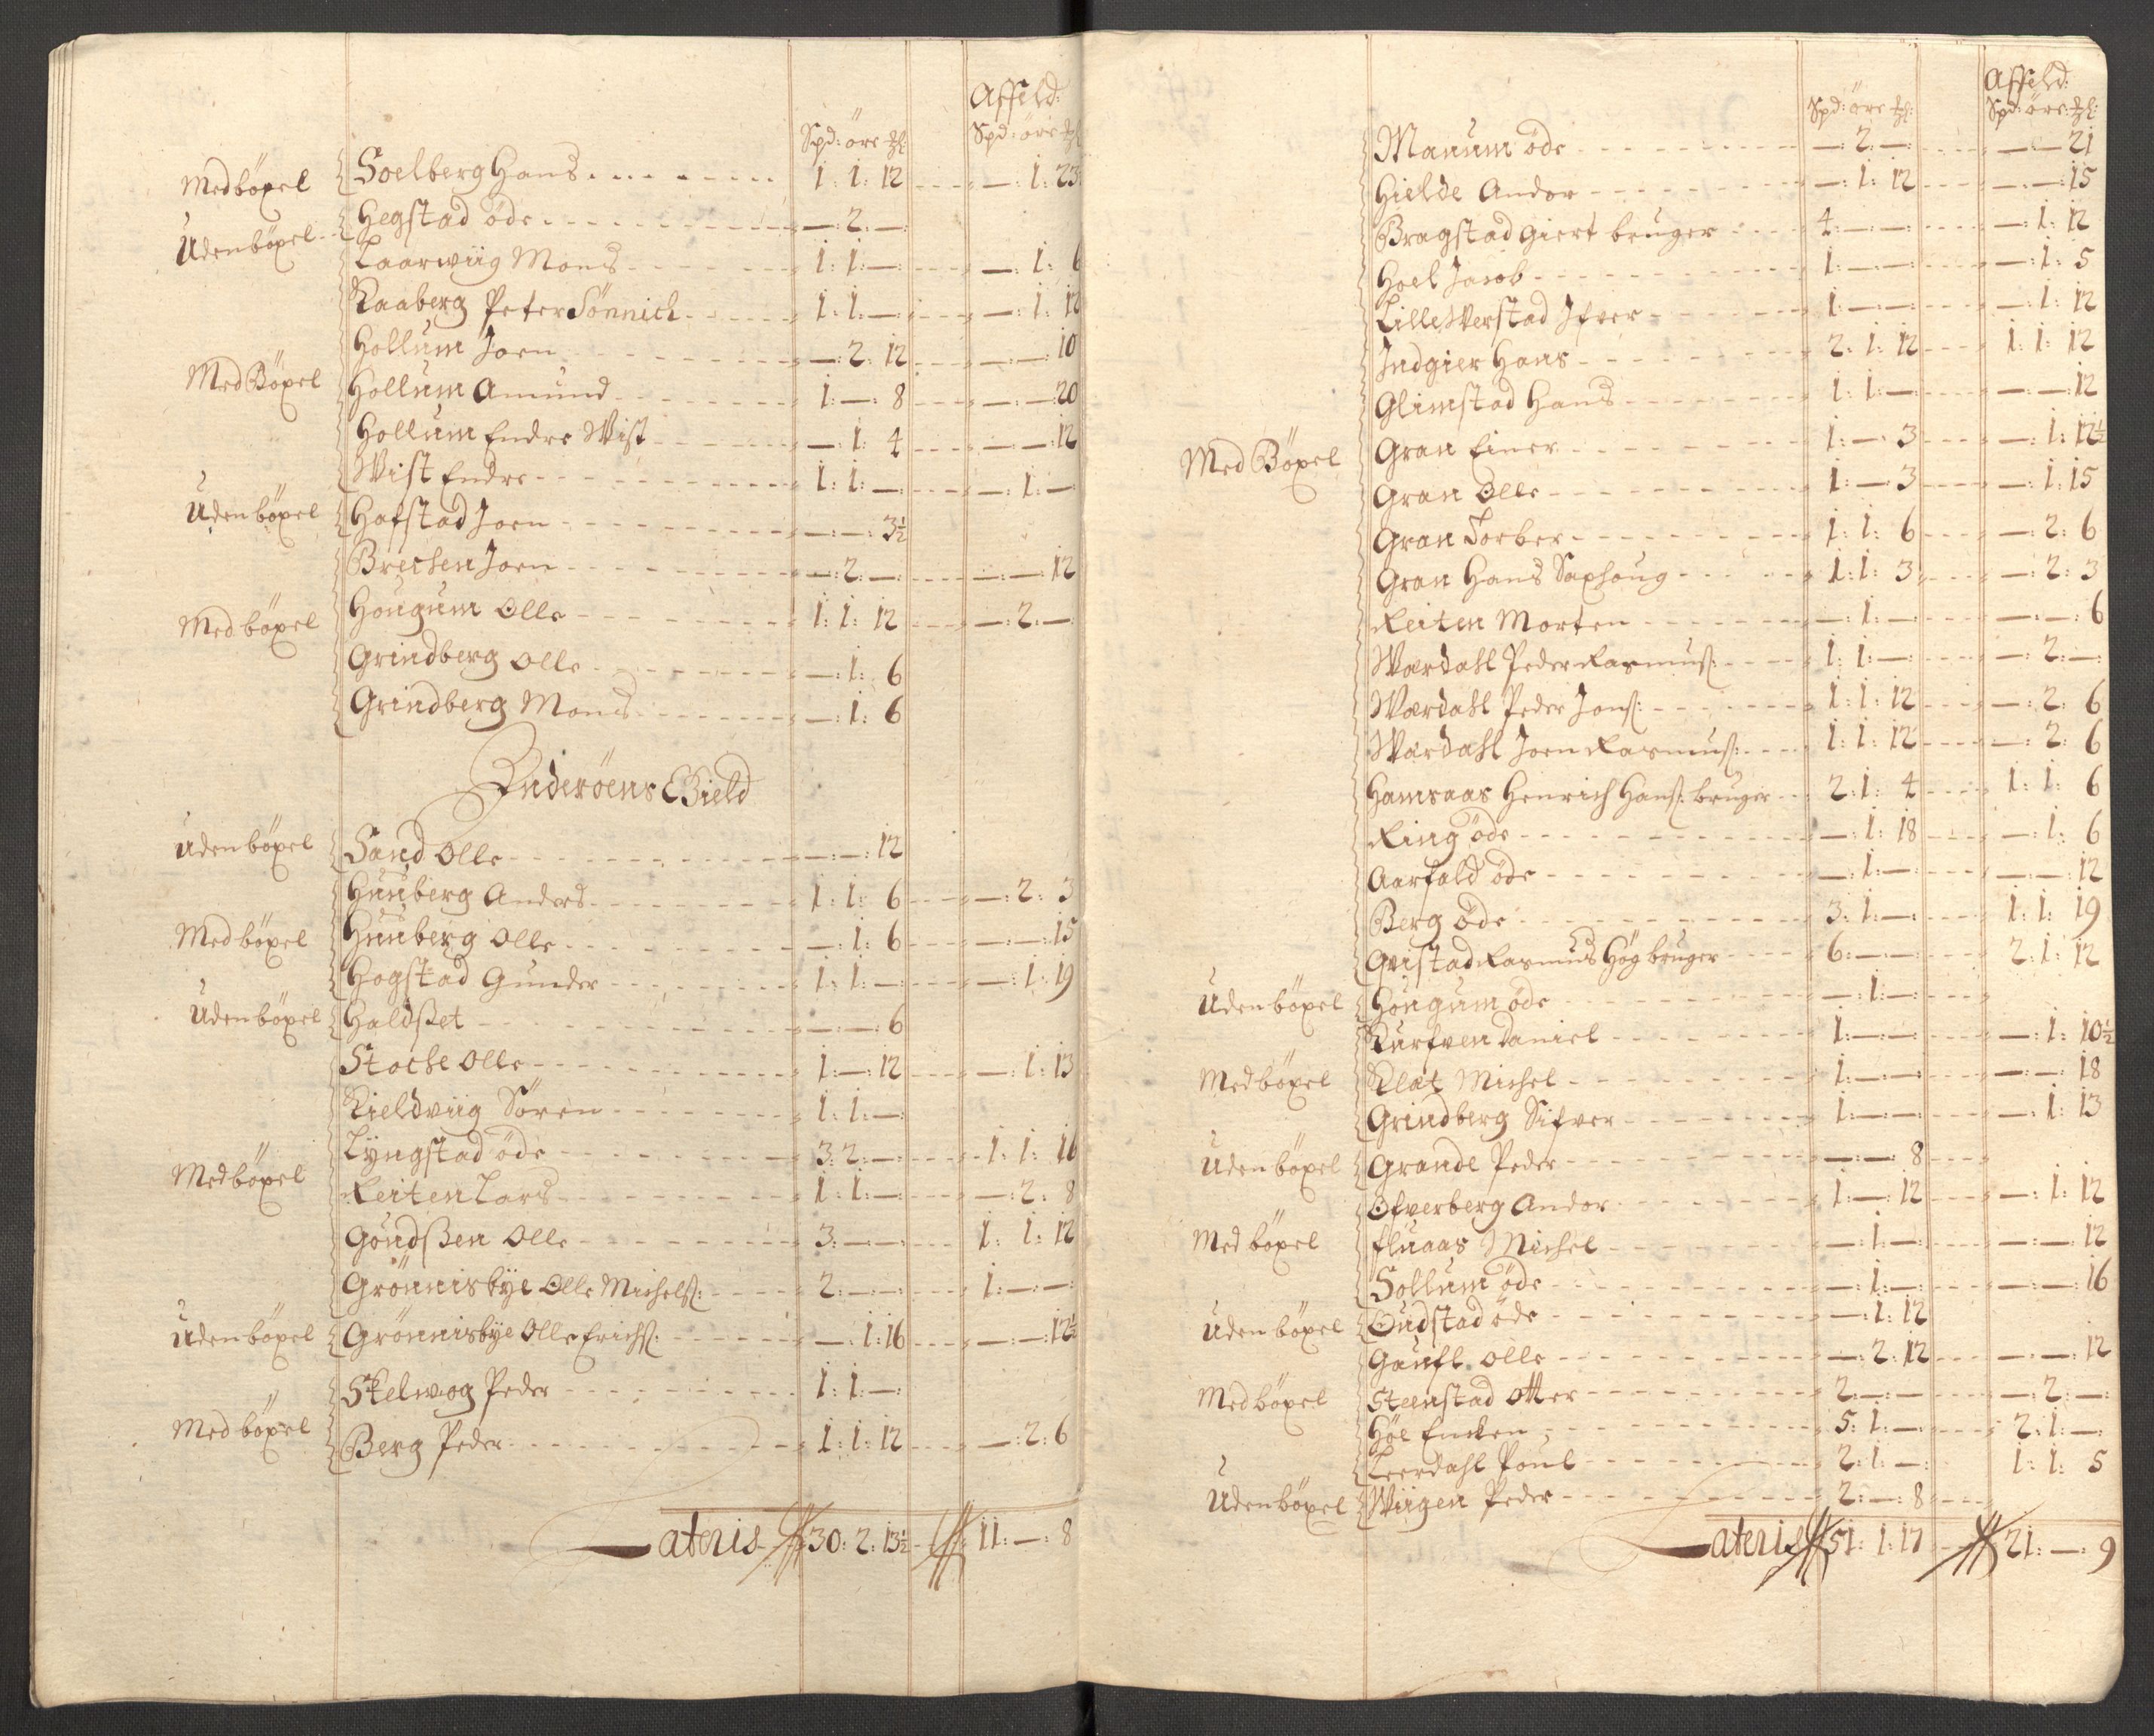 Affeld:
Spd: öre ₰l: Spd: öre ₰l
Medböxel Soelberg Hans 1: 1: 12 —: 1: 23
Udenböxel Hegstad öde —: 2: —
Laarwiig Mons 1: 1: — —: 1: 6
Kaaberg Peter Sönnich 1: 1: — —: 1: 12
Hollum Joen —: 2: 12 —: —: 10
Med Böxel Hollum Amund 1: —: 8 —: —: 20
Hollum Endre Wist —: 1: 4 —: —: 12
Wist Endre 1: 1: — —: 1: —
Udenböxel Hafstad Joen —: —: 3½
Brechen Joen —: 2: — —: —: 12
Medböxel Hougum Olle 1: 1: 12 —: 2: —
Grindberg Olle —: 1: 6
Grindberg Mons —: 1: 6
Inderöens Gield
Udenböxel Sand Olle —: —: 12
Huuberg Anders 1: 1: 6 —: 2: 3
Medböxel Huuberg Olle —: 1: 6 —: —: 15
Hogstad Gunder 1: 1: — —: 1: 19
Udenböxel Haldßet —: —: 6
Stoche Olle 1: —: 12 —: 1: 13
Kieldviig Sören 1: 1: —
Lyngstad öde 3: 2: — 1: 1: 16
Medböxel Reiten Lars 1: 1: — —: 2: 8
Goundßen Olle 3: —: — 1: 1: 12
Grönnisbye Olle Michelß: 2: —: — 1: —: —
Udenböxel Grönnisbye Olle Erichß: —: 1: 16 —: —: 12½
Skelwog Peder 1: 1: —
Medböxel Berg Peder 1: 1: 12 —: 2: 6
Lateris 30: 2: 13½ 11: —: 8
Affeld:
Spd: öre ₰l: Spd: öre: ₰l:
Manum öde —: 2: — —: —: 21
Hielde Andor —: 1: 12 —: —: 15
Bragstad Giert bruger 4: —: — —: 1: 12
Hoel Jacob 1: —: — —: 1: 5
Lille Werstad Ifver 1: —: — —: 1: 12
Indgier Hans 2: 1: 12 1: 1: 12
Glimstad Hans 1: 1: — —: —: 12
Med Böxel Gran Einer 1: —: 3 —: 1: 12½
Gran Olle 1: —: 3 —: 1: 15
Gran Torber 1: 1: 6 —: 2: 6
Gran Hans Saxhoug 1: 1: 3 —: 2: 3
Reiten Morten —: 1: — —: —: 6
Wærdahl Peder Rasmusß: 1: 1: — —: 2: —
Wærdahl Peder Jonß: 1: 1: 12 —: 2: 6
Wærdahl Joen Rasmusß: 1: 1: 12 —: 2: 6
Hamraas Henrich Hansß: bruger 2: 1: 4 1: 1: 6
Ring öde —: 1: 18 —: 1: 6
Aarfald öde —: 1: — —: —: 12
Berg öde 3: 1: — 1: 1: 19
Qvistad Rasmus Høg bruger 6: —: — 2: 1: 12
Udenböxel Hougum öde —: 1: —
Kurfven Daniel 1: —: — —: 1: 10½
Medböxel Klæt Michel 1: —: — —: —: 18
Grindberg Sifver 1: —: — —: 1: 13
Udenböxel Grande Peder —: —: 8
Ofverberg Andor 1: —: 12 —: 1: 12
Medböxel Fluaas Michel —: 1: — —: —: 12
Sollum öde —: 1: — —: —: 16
Udenböxel Oudstad öde —: 1: 12
Gaufl. Olle —: 2: 12 —: —: 12
Medböxel Steenstad Otter 2: —: — —: 2: —
Höe Encken 5: 1: — 2: 1: —
Leerdahl Poul 2: 1: — 1: 1: 5
Udenböxel Wiigen Peder 2: —: 8
Lateris 51: 1: 17 21: —: 9